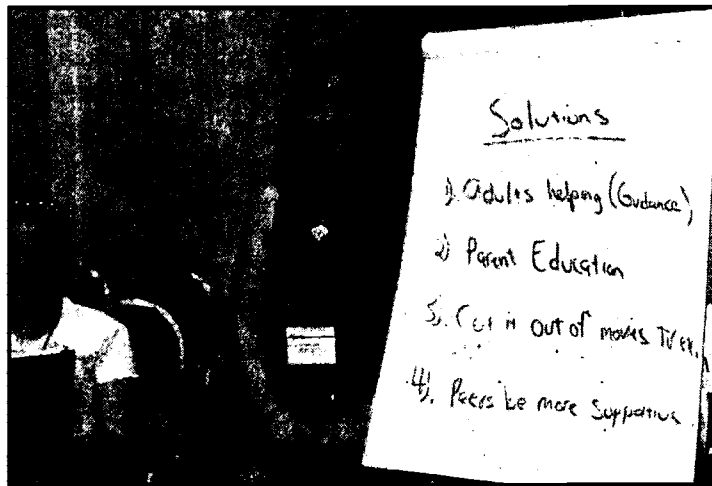 Solutions
1). adults helping (Guidance)
2) Parent Education
3). Cut it out of movies TV ex.
4). Peers be more supportive